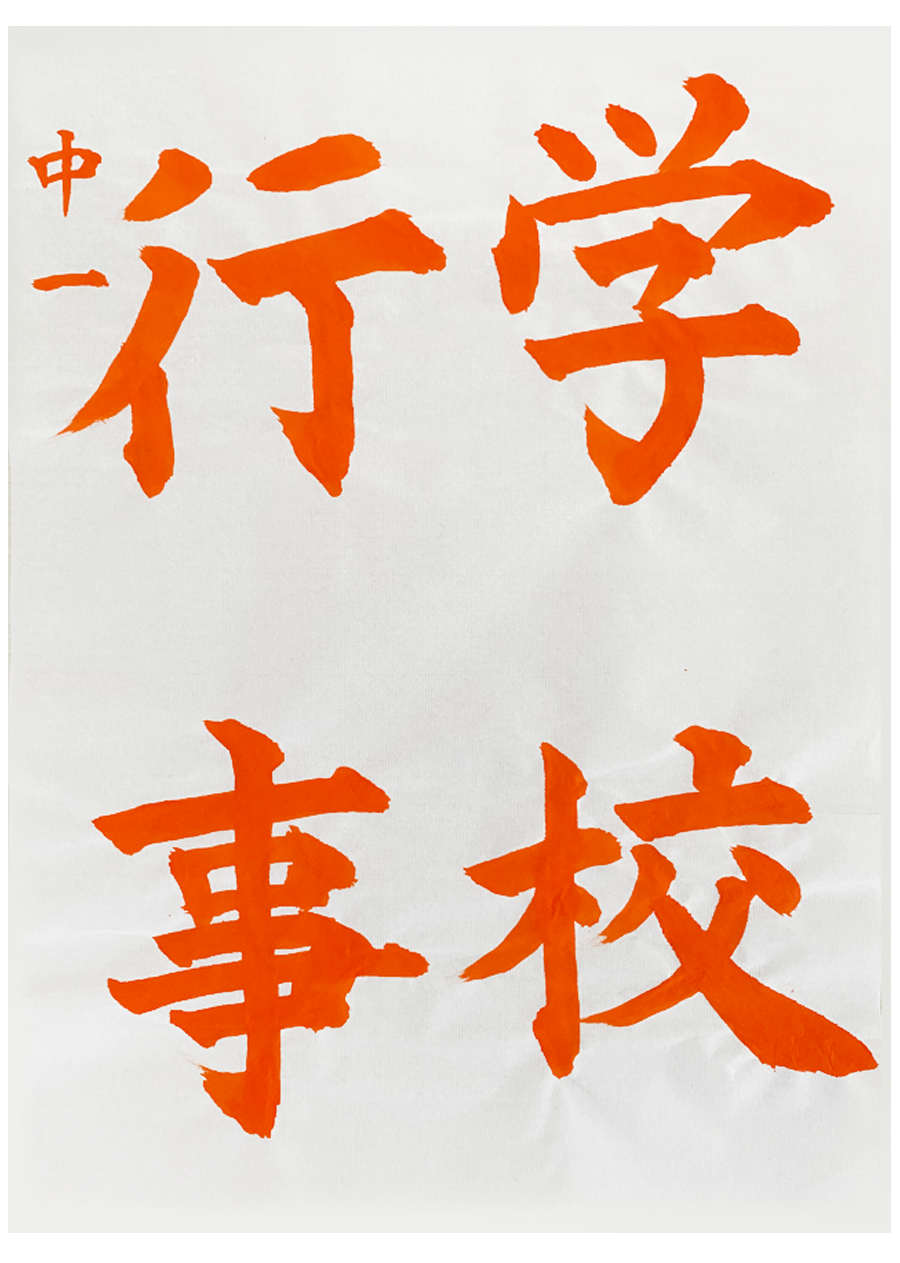 学校
行事
中一